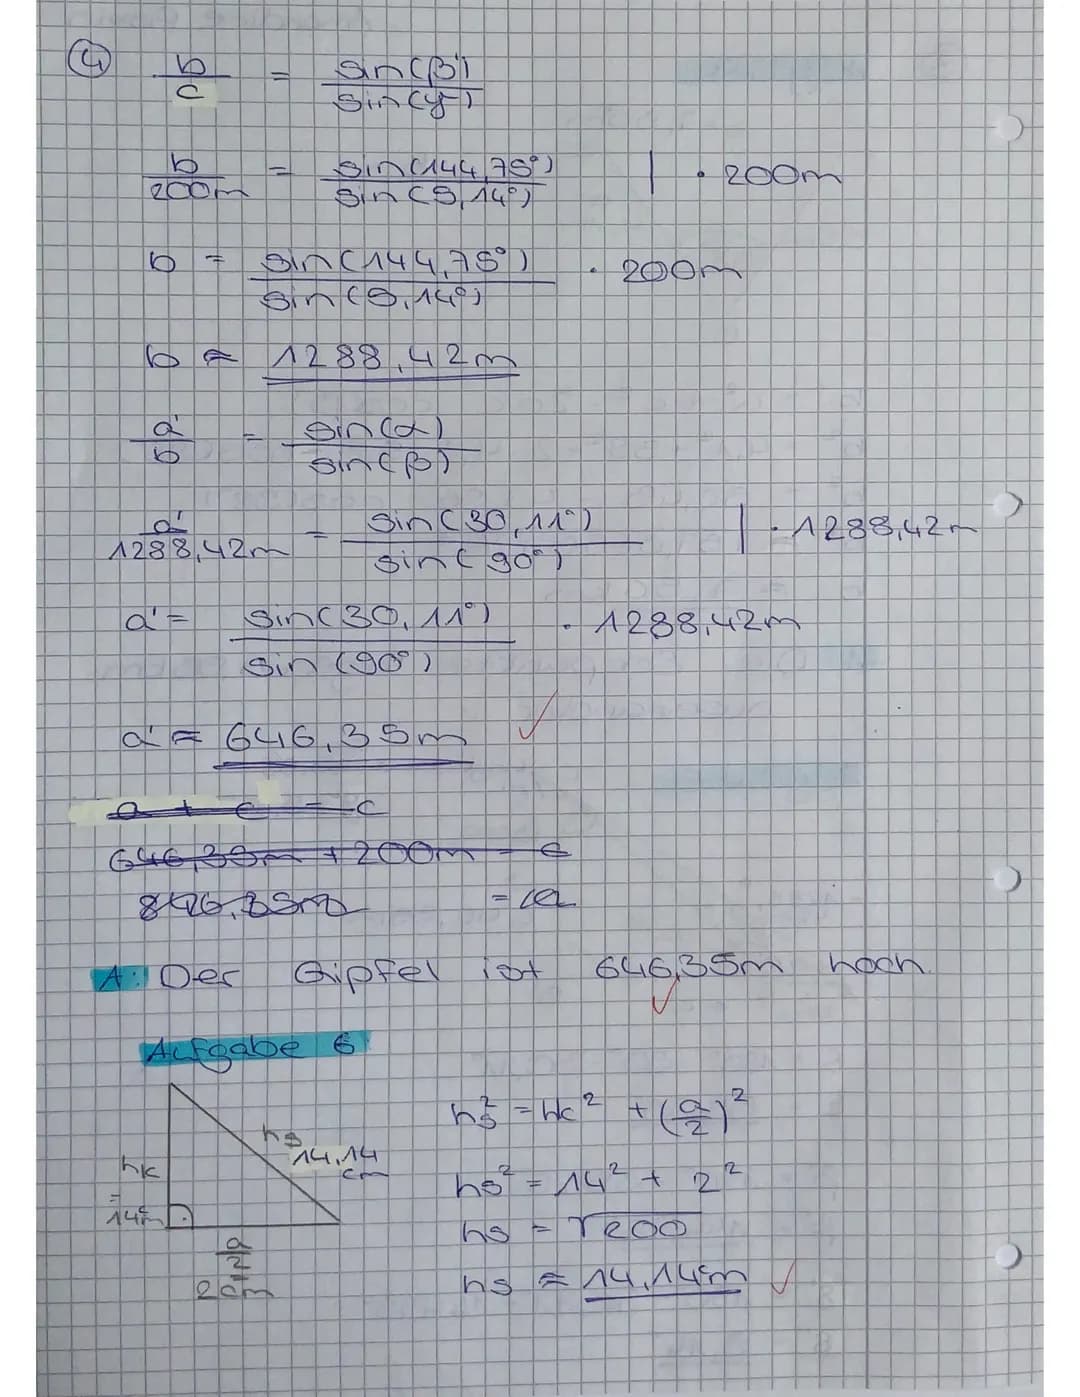 ④ b/c = sin(β')/sin(γ)
b/200m = sin(144,75°)/sin(5,14°) | · 200m
b = sin(144,75°)/sin(5,14°) · 200m
b ≈ 1288,42m
a'/b = sin(α)/sin(β)
a'/1288,42m = sin(30,11°)/sin(90°) | · 1288,42m
a' = sin(30,11°)/sin(90°) · 1288,42m
a' ≈ 646,35m ✓
a + c = c
646,35m + 200m = c
846,35m = a
A: Der Gipfel ist 646,35m hoch ✓
Aufgabe 6
hs² = hk² + (a/2)²
hs² = 14² + 2²
hs = √200
hs ≈ 14,14cm ✓
hs
14,14
cm
hk
=
14cm
a/2
2cm